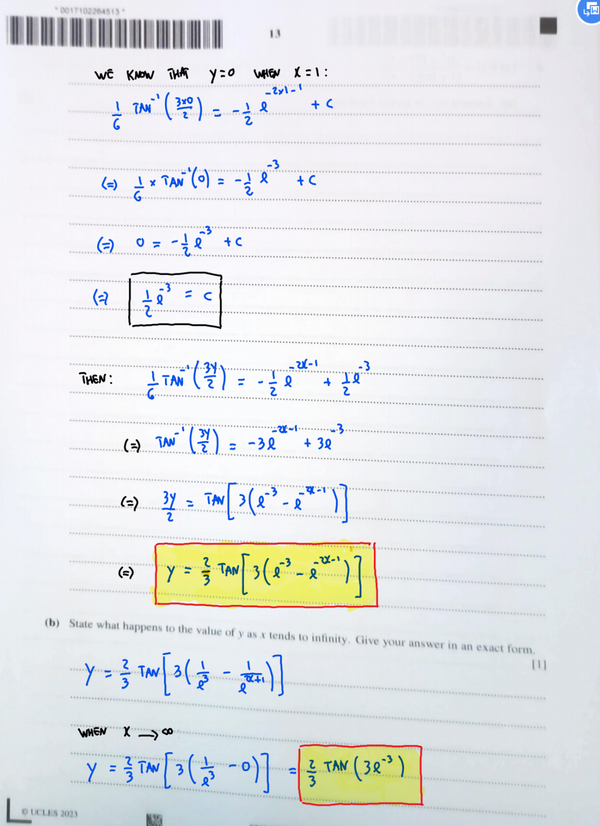 * 0017102264513 *
13
WE KNOW THAT y=0 WHEN x=1:
1/6 TAN⁻¹(3x0/2) = -1/2 e^(-2x1-1) + C
(=) 1/6 x TAN⁻¹(0) = -1/2 e^(-3) + C
(=) 0 = -1/2 e^(-3) + C
(=) 1/2 e^(-3) = C
THEN: 1/6 TAN⁻¹(3y/2) = -1/2 e^(-2x-1) + 1/2 e^(-3)
(=) TAN⁻¹(3y/2) = -3e^(-2x-1) + 3e^(-3)
(=) 3y/2 = TAN[3(e^(-3) - e^(-2x-1))]
(=) y = 2/3 TAN[3(e^(-3) - e^(-2x-1))]
(b) State what happens to the value of y as x tends to infinity. Give your answer in an exact form.
[1]
y = 2/3 TAN[3(1/e^3 - 1/e^(2x+1))]
WHEN x → ∞
y = 2/3 TAN[3(1/e^3 - 0)] = 2/3 TAN(3e^(-3))
© UCLES 2023